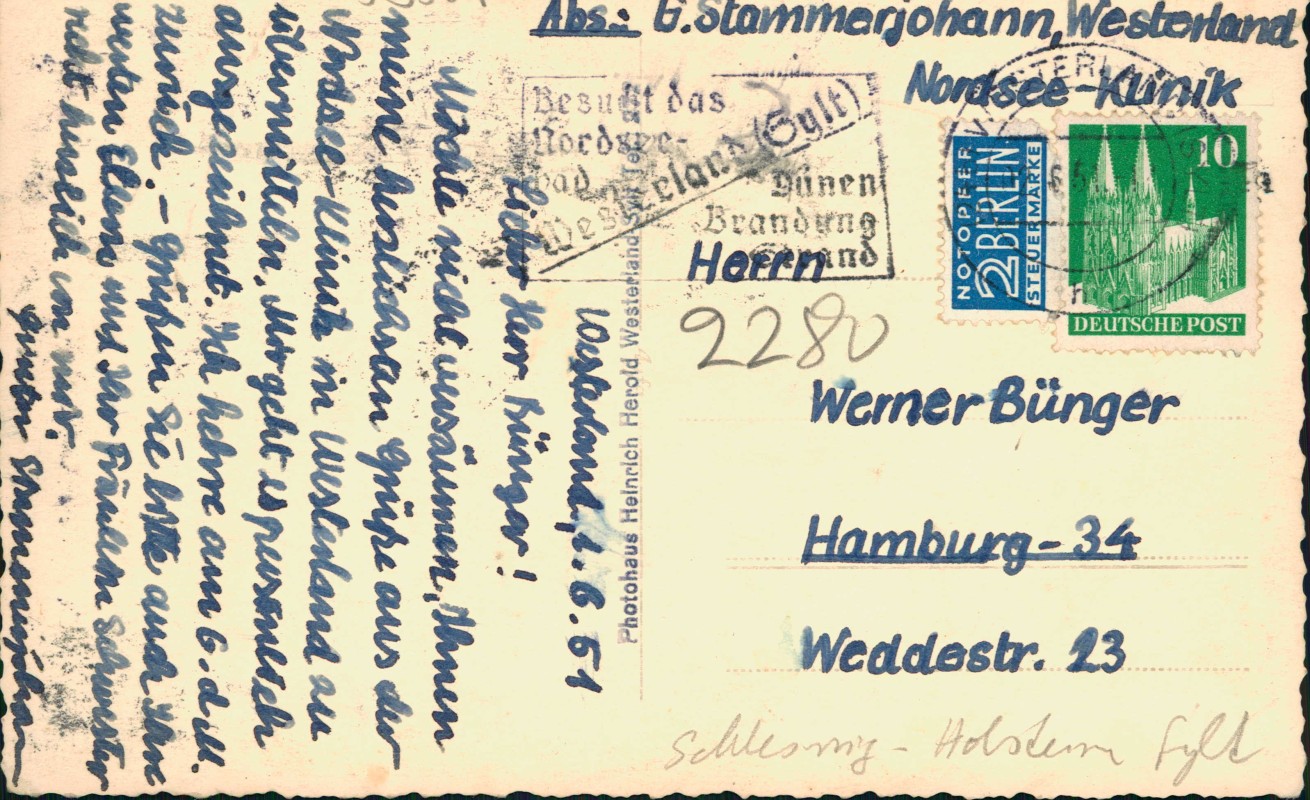 Abs.: G. Stammerjohann, Westerland
Nordsee-Klinik
Besucht das
Nordsee-
bad
Westerland (Sylt)
Dünen
Brandung
Strand
NOTOPFER
2 BERLIN
STEUERMARKE
10
DEUTSCHE POST
Herrn
2280
Werner Bünger
Hamburg-34
Weddestr. 23
Schleswig-Holstein Sylt
Photohaus Heinrich Herold Westerland
Westerland, 2.6.51
Lieber Herr Bünger!
Möchte nicht versäumen, Ihnen
meine herzlichsten Grüße aus der
Nordsee-Klinik in Westerland zu
übermitteln. Mir geht es persönlich
ausgezeichnet. Ich kehre am 6. d. M.
zurück. – Grüßen Sie bitte auch Ihre
werten Eltern und Ihr Fräulein Schwester
recht herzlich von mir.
Günter Stammerjohann